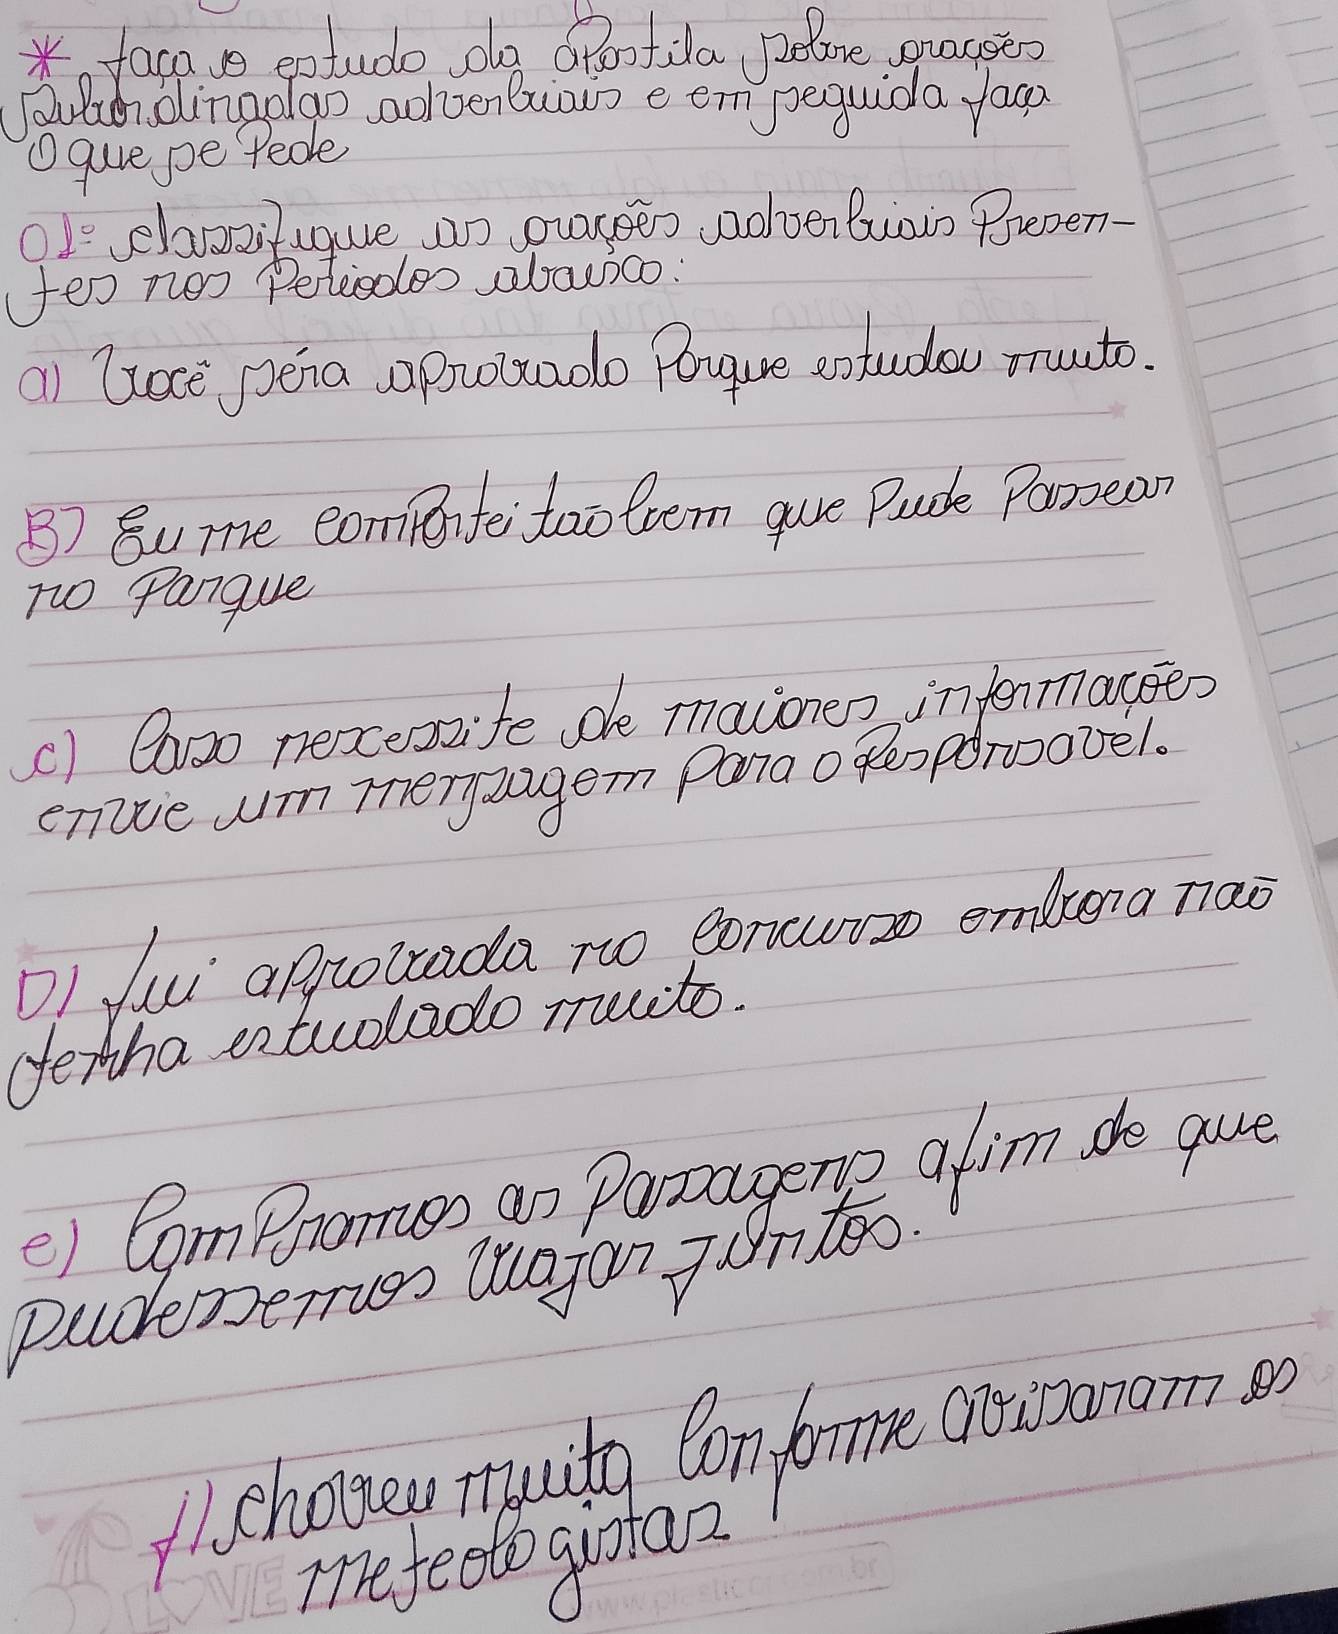 * faça o estudo da apostila sobre orações
subordinadas adverbiais e em seguida faça
O que se Pede
01º classifique as orações adverbiais Presen-
tes nos Periodos abaixo:
a) Você séra aprovado Porque estudou muito.
B) Eu me comportei tão bem que Pude Passear
no Parque
c) Caso nescessite de maiores informações
envie um mensagem Para o Responsavel.
D) fui aprovada no concurso embora não
tenha estudado muito.
e) Compramos as Passagens afim de que
pudessemos viajar juntos.
f) choveu muito Conforme avisaram os
meteologistas
LOVE